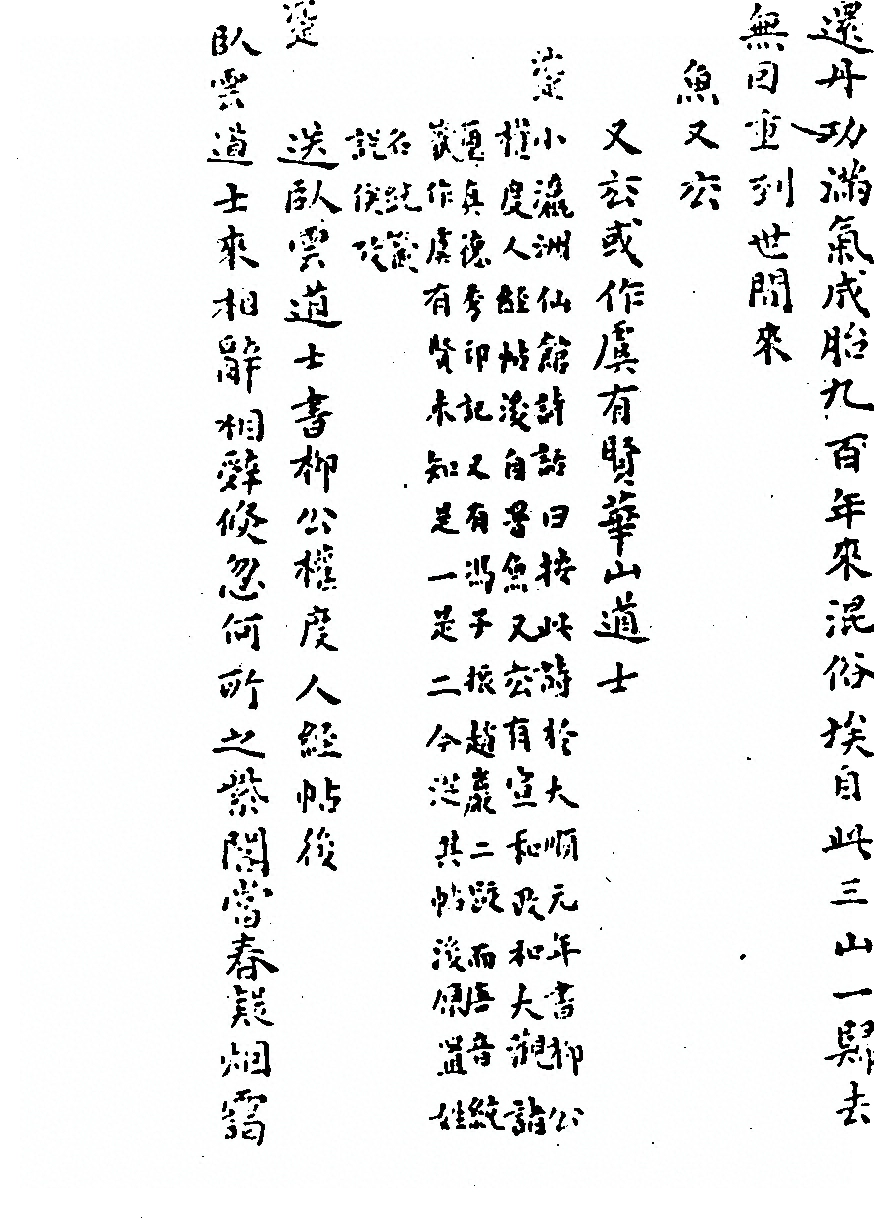 還丹功滿氣成胎九百年來混俗埃自此三山一歸去
無因重到世間來
魚又玄
又玄或作虞有賢華山道士
小瀛洲仙館詩話曰按此詩於大順元年書柳公
權度人經帖後自署魚又玄有宣和政和大觀諸
璽真德秀印記又有馮子振趙巖二跋而唐音統
籤作虞有賢未知是一是二今從其帖後仍置姓
名統籤
說俟攷
送臥雲道士書柳公權度人經帖後
臥雲道士來相辭相辭倏忽何所之紫閣當春凝烟靄